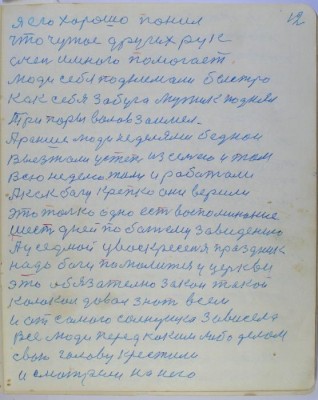 12
я его хорошо понил
что чужое других рук
очен много помогает.
люди себя поднимали быстро
как себя забуга мужик поднял
Три пары валов заимел.
Аранше люди неделями бедном
виезжали устеп из сино и там
всю неделю жили и работали
А как богу крепко они верили
это толко одно ест воспоминание
шест дней по божему завидению
Ау седмой увоскресеня праздник
надо богу помолится у церкви
это обязателно закон такой
колокол довал знат всем
и от самого солнушка зависело
Все люди перед каким либо делом
свою голову крестили
и смотрели на него